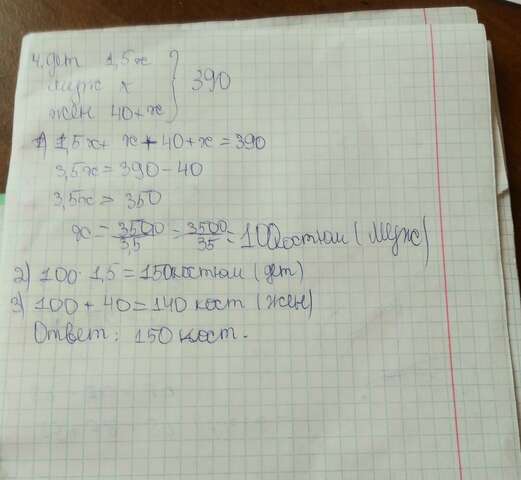 4. дет 1,5x
муж x } 390
жен 40+x
1) 1,5x+ x + 40+x = 390
3,5x = 390-40
3,5x = 350
x = 3500/3,5 = 3500/35 = 100костюм (муж)
2) 100 · 1,5 = 150костюм (дет)
3) 100 + 40 = 140 кост (жен)
Ответ: 150 кост.